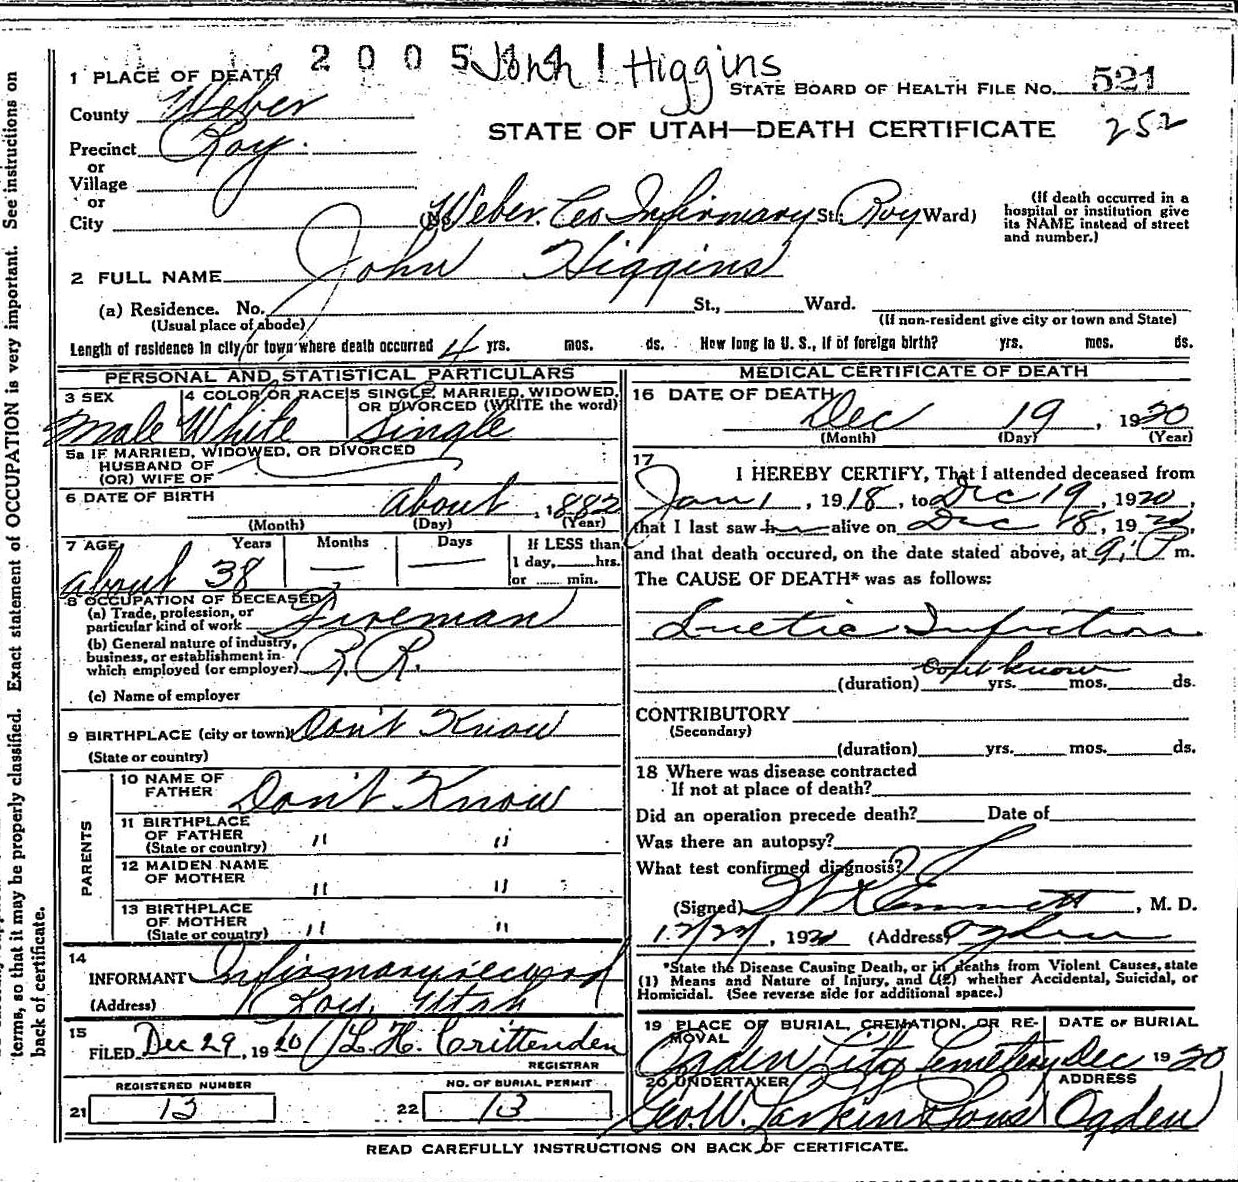 2005
John Higgins
1 PLACE OF DEATH
STATE BOARD OF HEALTH FILE NO. 521
County Weber
STATE OF UTAH—DEATH CERTIFICATE
252
Precinct Roy
or
Village
or
City
(No. Weber Co Infirmary St. Roy Ward)
(If death occurred in a
hospital or institution give
its NAME instead of street
and number.)
2 FULL NAME John Higgins
(a) Residence. No. St., Ward.
(Usual place of abode)
(If non-resident give city or town and State)
Length of residence in city or town where death occurred 4 yrs. mos. ds. How long in U. S., if of foreign birth? yrs. mos. ds.
PERSONAL AND STATISTICAL PARTICULARS
3 SEX
Male
4 COLOR OR RACE
White
5 SINGLE, MARRIED, WIDOWED,
OR DIVORCED (WRITE the word)
Single
5a IF MARRIED, WIDOWED, OR DIVORCED
HUSBAND OF
(OR) WIFE OF
6 DATE OF BIRTH about , 1882
(Month) (Day) (Year)
7 AGE Years Months Days
about 38 — —
If LESS than
1 day, hrs.
or min.
8 OCCUPATION OF DECEASED
(a) Trade, profession, or
particular kind of work Fireman
(b) General nature of industry,
business, or establishment in
which employed (or employer) R.R.
(c) Name of employer
9 BIRTHPLACE (city or town) Don't Know
(State or country)
PARENTS
10 NAME OF
FATHER Don't Know
11 BIRTHPLACE
OF FATHER
(State or country) " "
12 MAIDEN NAME
OF MOTHER " "
13 BIRTHPLACE
OF MOTHER
(State or country) " "
14
INFORMANT Infirmary record
(Address) Roy, Utah
15
FILED Dec 29, 1920 L. H. Crittenden
REGISTRAR
REGISTERED NUMBER
21 13
NO. OF BURIAL PERMIT
22 13
MEDICAL CERTIFICATE OF DEATH
16 DATE OF DEATH
Dec 19, 1920
(Month) (Day) (Year)
17
I HEREBY CERTIFY, That I attended deceased from
Jan 1, 1918, to Dec 19, 1920,
that I last saw him alive on Dec 18, 1920,
and that death occured, on the date stated above, at 9, P m.
The CAUSE OF DEATH* was as follows:
Luetic Infection
don't know
(duration) yrs. mos. ds.
CONTRIBUTORY
(Secondary)
(duration) yrs. mos. ds.
18 Where was disease contracted
If not at place of death?
Did an operation precede death? Date of
Was there an autopsy?
What test confirmed diagnosis?
(Signed) , M. D.
, 1920 (Address) Ogden
*State the Disease Causing Death, or in deaths from Violent Causes, state
(1) Means and Nature of Injury, and (2) whether Accidental, Suicidal, or
Homicidal. (See reverse side for additional space.)
19 PLACE OF BURIAL, CREMATION, OR RE-
MOVAL
Ogden City Cemetery
DATE OF BURIAL
Dec 1920
20 UNDERTAKER
Geo. W. Larkin & Sons
ADDRESS
Ogden
READ CAREFULLY INSTRUCTIONS ON BACK OF CERTIFICATE.
terms, so that it may be properly classified. Exact statement of OCCUPATION is very important. See instructions on
back of certificate.